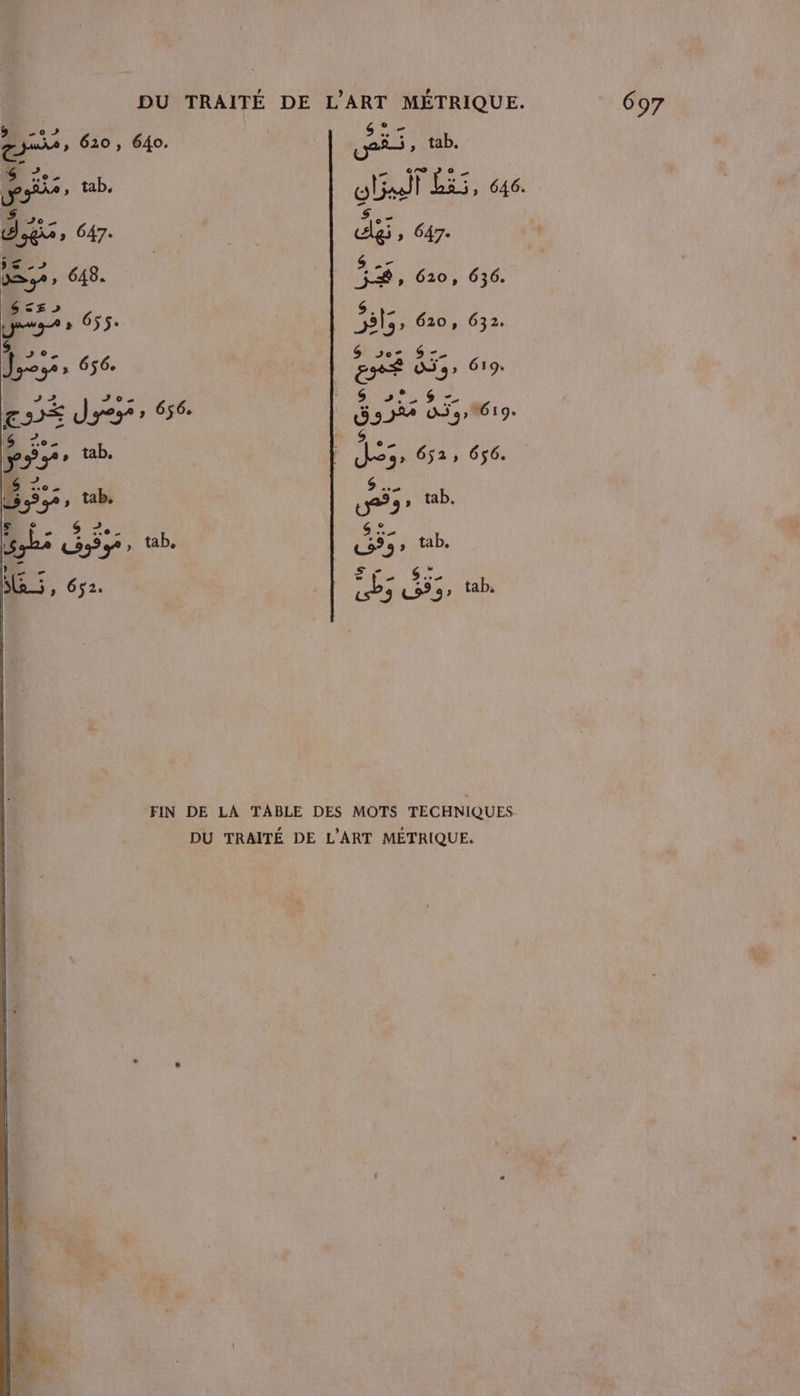 DU TRAITÉ DE L'ART MÉTRIQUE. 697
مُنْسَرِحٌ, 620, 640.
مَنْقُوصٌ, tab.
مَنْهُوكٌ, 647.
648.
655.
مَوْصُولٌ, 656.
مَوْصُول خُرُوج, 656.
tab.
مَوْقُوفٌ, tab.
مَوْقُوفٌ مَطْوِىٌّ, tab.
نَفَاذٌ, 652.
نَقْصٌ, tab.
646.
نَهْكٌ, 647.
620, 636.
وَافِرٌ, 620, 632.
وَتَدٌ مَجْمُوعٌ, 619.
وَتَدٌ مَفْرُوقٌ, 619.
وَصْلٌ, 652, 656.
وَقْصٌ, tab.
وَقْفٌ, tab.
وَقْفٌ وَطَىٌّ, tab.
FIN DE LA TABLE DES MOTS TECHNIQUES
DU TRAITÉ DE L'ART MÉTRIQUE.